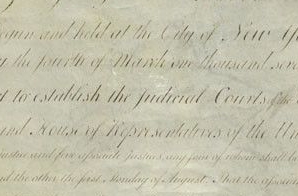 begun and held at the City of New Y
the fourth of March one thousand seve
to establish the Judicial Courts of the
and House of Representatives of the Un
justice and five associate justices, any four of whom shall be
and the other the first Monday of August. That the associate